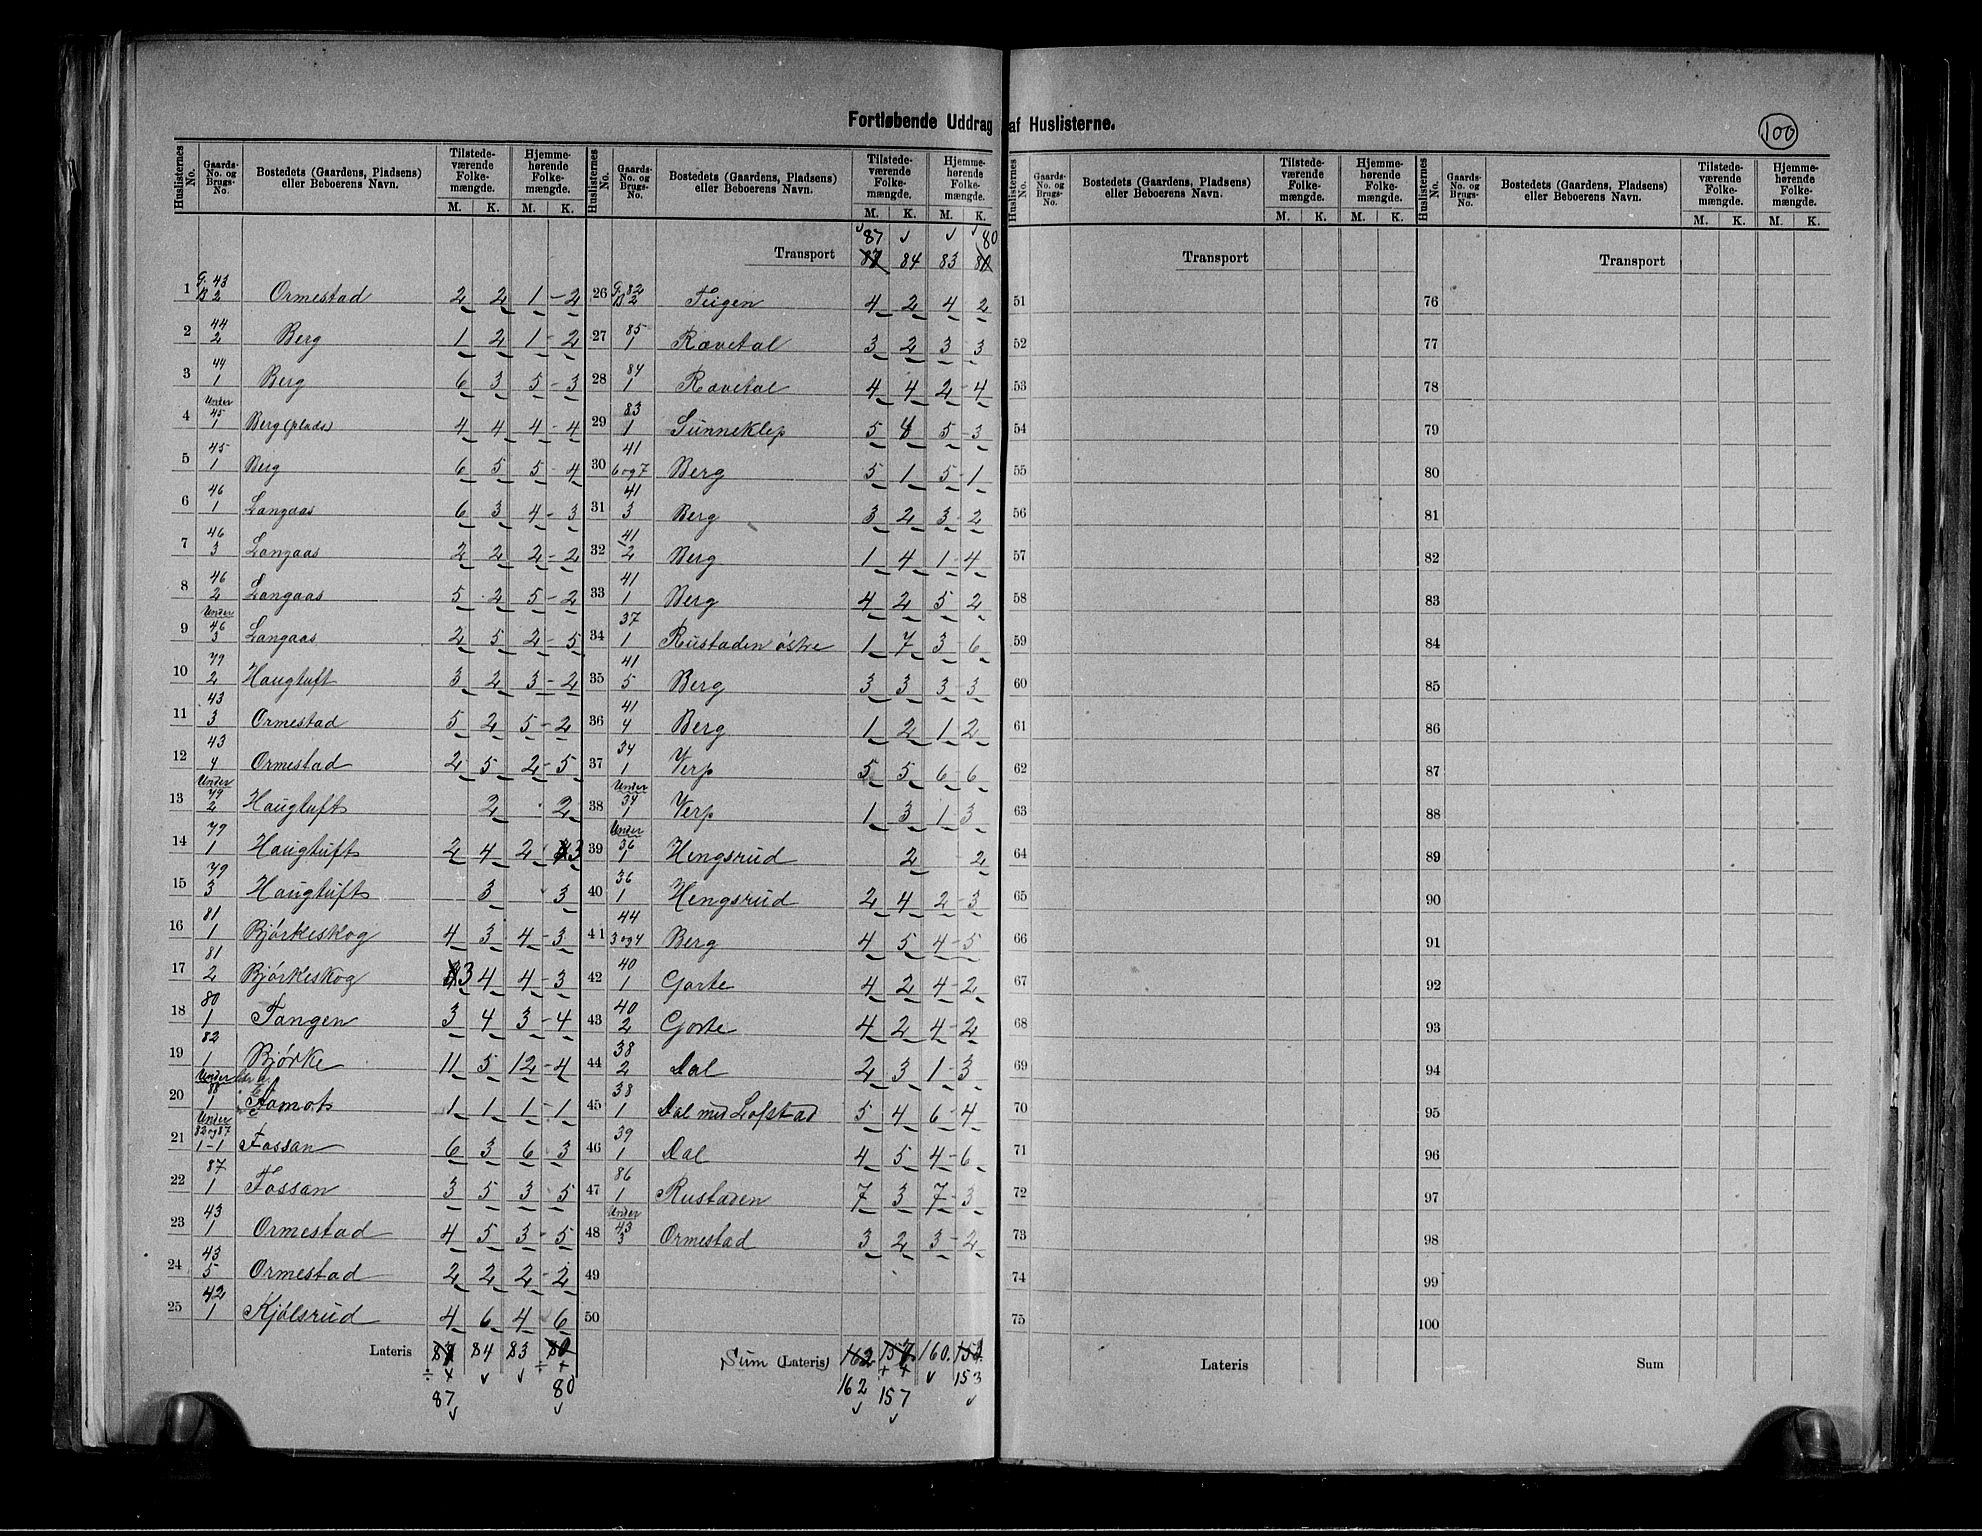 Fortløbende Uddrag af Huslisterne.
100
Huslisternes No. | Gaards-No. og Brugs-No. | Bostedets (Gaardens, Pladsens) eller Beboerens Navn. | Tilstedeværende Folkemængde. M. K. | Hjemmehørende Folkemængde. M. K.
1 G. 43 B 2 Ormestad 2 2 1 - 2
2 44 2 Berg 1 2 1 - 2
3 44 1 Berg 6 3 5 - 3
4 Under 45 1 Berg (plads) 4 4 4 - 4
5 45 1 Berg 6 5 5 - 4
6 46 1 Langaas 6 3 4 - 3
7 46 3 Langaas 2 2 2 - 2
8 46 2 Langaas 5 2 5 - 2
9 Under 46 3 Langaas 2 5 2 - 5
10 79 2 Haugtuft 3 2 3 - 2
11 43 3 Ormestad 5 2 5 - 2
12 43 4 Ormestad 2 5 2 - 5
13 Under 79 2 Haugtuft 2 2
14 79 1 Haugtuft 2 4 2 3
15 79 3 Haugtuft 3 3
16 81 1 Bjørkeskog 4 3 4 - 3
17 81 2 Bjørkeskog 3 4 4 - 3
18 80 1 Tangen 3 4 3 - 4
19 82 1 Bjørke 11 5 12 - 4
20 Under 1 Aamot 1 1 1 - 1
21 Under 82 og 87 1 - 1 Fossan 6 3 6 3
22 87 1 Fossan 3 5 3 - 5
23 43 1 Ormestad 4 5 3 - 5
24 43 5 Ormestad 2 2 2 - 2
25 42 1 Kjølsrud 4 6 4 6
Lateris 84 83
87 80
Huslisternes No. | Gaards-No. og Brugs-No. | Bostedets (Gaardens, Pladsens) eller Beboerens Navn. | Tilstedeværende Folkemængde. M. K. | Hjemmehørende Folkemængde. M. K.
87 80
Transport 84 83
26 G. 82 B 2 Teigen 4 2 4 2
27 85 1 Rævetal 3 2 3 3
28 84 1 Rævetal 4 4 2 - 4
29 83 1 Sunneklep 5 5 - 3
30 41 6 og 7 Berg 5 1 5 - 1
31 41 3 Berg 3 2 3 - 2
32 41 2 Berg 1 4 1 - 4
33 41 1 Berg 4 2 5 2
34 37 1 Rustaden østre 1 7 3 6
35 41 5 Berg 3 3 3 - 3
36 41 4 Berg 1 2 1 2
37 34 1 Verp 5 5 6 - 6
38 Under 34 1 Verp 1 3 1 3
39 Under 36 1 Hengsrud 2 2
40 36 1 Hengsrud 2 4 2 - 3
41 44 3 og 4 Berg 4 5 4 - 5
42 40 1 Gorte 4 2 4 - 2
43 40 2 Gorte 4 2 4 - 2
44 38 2 Dal 2 3 1 - 3
45 38 1 Dal med Lofstad 5 4 6 - 4
46 39 1 Dal 4 5 4 - 6
47 86 1 Rustaden 7 3 7 - 3
48 Under 43 3 Ormestad 3 2 3 - 2
49
50
Sum (Lateris) 162 157 160. 
162 157 153
Huslisternes No. | Gaards-No. og Brugs-No. | Bostedets (Gaardens, Pladsens) eller Beboerens Navn. | Tilstedeværende Folkemængde. M. K. | Hjemmehørende Folkemængde. M. K.
Transport
51
52
53
54
55
56
57
58
59
60
61
62
63
64
65
66
67
68
69
70
71
72
73
74
75
Lateris
Huslisternes No. | Gaards-No. og Brugs-No. | Bostedets (Gaardens, Pladsens) eller Beboerens Navn. | Tilstedeværende Folkemængde. M. K. | Hjemmehørende Folkemængde. M. K.
Transport
76
77
78
79
80
81
82
83
84
85
86
87
88
89
90
91
92
93
94
95
96
97
98
99
100
Sum